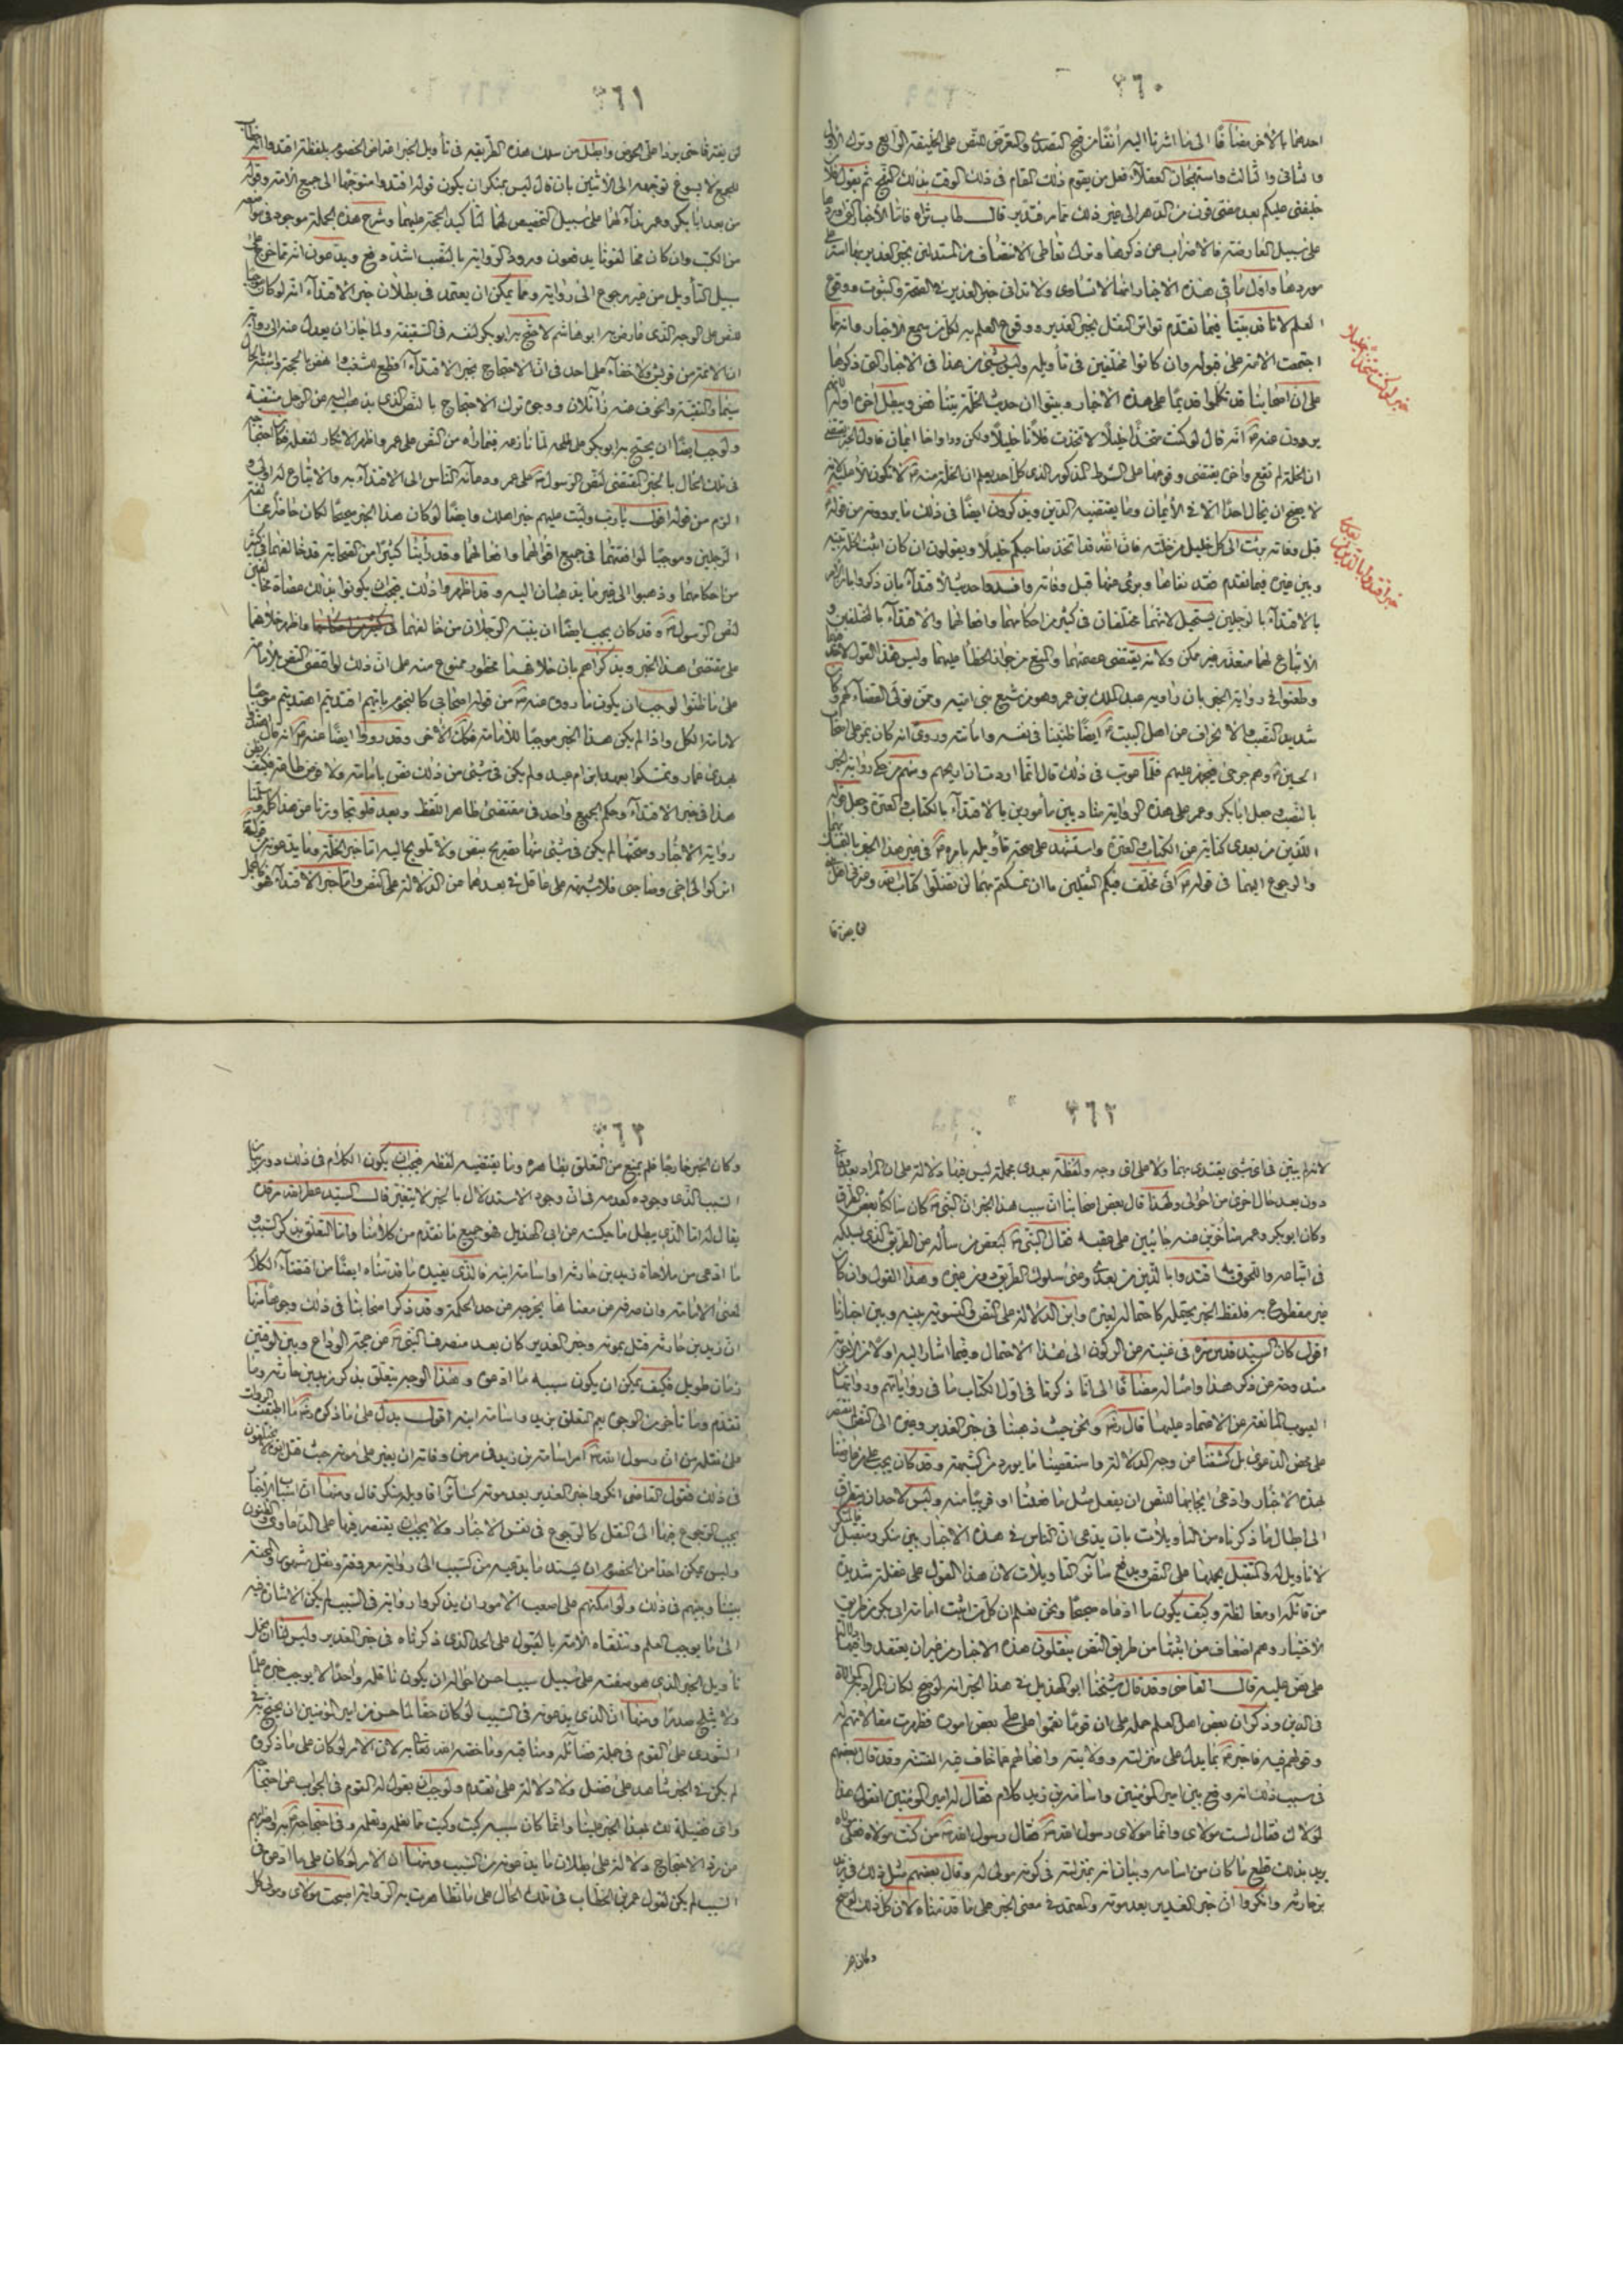 ٣٦٠
احدهما بالأخر مضافا الى ما اشرنا اليه أنفا من قبح التصدى والتعرض للنص على الخليفة الرابع وترك الأول
والثانى والثالث واستهجان العقلاء فعل من يقوم ذلك المقام فى ذلك الوقت بذلك النهج ثم يقول
خليفتى عليكم بعد مضى قرن من الدهر الى غير ذلك مما مر فتدبر قال طاب ثراه فاما الأخبار التى اوردها
على سبيل المعارضة فالاضراب عن ذكرها وترك تعاطى الانتصاف من المستدلين بخبر الغدير بها استر على
موردها واول ما فى هذه الاخبار انها لا تساوى ولا تدانى خبر الغدير فى الصحة والثبوت ووقوع
العلم لانا قد بينا فيما تقدم تواتر النقل بخبر الغدير ووقوع العلم به لكل من سمع الاخبار وانه مما
اجتمعت الامة على قبوله وان كانوا مختلفين فى تأويله وليس شئ من هذا فى الاخبار التى ذكرها
على ان اصحابنا قد تكلموا قديما على هذه الاخبار وبينوا ان حديث الخلة يتناقض ويبطل آخره اوله
يروون عنه انه قال لو كنت متخذا خليلا لاتخذت فلانا خليلا ولكن ود واخا ايمان فاول الخبر يقتضى
ان الخلة لم تقع واخره يقتضى وقوعها على الشرط المذكور الذى كل احد يعلم ان الخلة منه لا تكون الا عليه لانه
لا يصح ان يخال احدا الا فى الأيمان وما يقتضيه الدين ويذكرون ايضا فى ذلك ما يروونه من قوله
قبل وفاته برئت الى كل خليل من خلته فان الله قد اتخذ صاحبكم خليلا ويقولون ان كان اثبت الخلة بينه
وبين غيره فيما تقدم فقد نفاها وبرئ منها قبل وفاته وافسدوا حديث الاقتداء بان ذكروا ان الامر
بالاقتداء بالرجلين يستحيل لانهما مختلفان فى كثير من احكامهما وافعالهما والاقتداء بالمختلفين و
الاتباع لهما متعذر غير ممكن ولانه يقتضى عصمتهما والمنع من جواز الخطأ عليهما وليس هذا القول لاحد فيهما
وطعنوا فى رواية الخبر بان راويه عبد الملك بن عمر وهو من شيع بنى امية وممن تولى القضاء لهم وكان
شديد النصب والانحراف عن اهل البيت ايضا ظنينا فى نفسه وامانته وروى انه كان يمر على اصحاب
الحسين وهم جرحى فيجهز عليهم فلما عوتب فى ذلك قال انما اردت ان اريحهم ومنهم من حكى رواية الخبر
بالنصب وجعل ابا بكر وعمر على هذه الرواية مناديين مأمورين بالاقتداء بالكتاب والعترة وجعل قوله
اللذين من بعدى كناية عن الكتاب والعترة واستشهد على صحة تأويله بامره فى غير هذا الخبر بالتمسك بهما
والرجوع اليهما فى قوله انى مخلف فيكم الثقلين ما ان تمسكتم بهما لن تضلوا كتاب الله وعترتى اهل بيتى
خبر لو كنت متخذا خليلا
خبر اقتدوا باللذين من بعدى
٣٦١
لن يفترقا حتى يردا على الحوض وابطل من سلك هذه الطريقة فى تأويل الخبر اعتراض الخصوم بلفظة اقتدوا
للجمع لا يسوغ توجهه الى الأثنين بان قال ليس بمنكر ان يكون قوله اقتدوا متوجها الى جميع الامة وقوله
من بعدى ابا بكر وعمر نداء لهما على سبيل التخصيص لهما لتأكيد الحجة عليهما وشرح هذه الجملة موجود فى مواضعه
من الكتب وان كان مخالفونا يدفعون ورود الرواية بالنصب اشد دفع ويدعون انه مما خرج على
سبيل التأويل من غير رجوع الى رواية ومما يمكن ان يعتمد فى بطلان خبر الاقتداء انه لو كان موجبا
للنص على الوجه الذى عارض به ابو هاشم لاحتج به ابو بكر لنفسه فى السقيفة ولما جاز ان يعدل عنه الى رواية
ان الائمة من قريش ولا خفاء على احد فى ان الاحتجاج بخبر الاقتداء اقطع للشغب واخص بالحجة واشبه بالحال
سيما والتقية والخوف عنه زائلان ووجوه ترك الاحتجاج بالنص الذى يذهب اليه من الرجل منتفية
ولوجب ايضا ان يحتج به ابو بكر على طلحة لما نازعه فيما رأه من النص على عمر واظهر الانكار لفعله
فى تلك الحال بالخبر المقتضى لنص الرسول على عمر ودعائه الناس الى الاقتداء به والاتباع له اولى و
الزم من قوله اقول يا رب وليت عليهم خير اهلك وايضا لو كان هذا الخبر صحيحا لكان حاظرا مخالفة
الرجلين وموجبا لموافقتهما فى جميع اقوالهما وافعالهما وقد رأينا كثيرا من الصحابة قد خالفهما فى كثير
من احكامهما وذهبوا الى غير ما يذهبان اليه وقد اظهروا ذلك فيجب ان يكونوا بذلك عصاة مخالفين
لنص الرسول وقد كان يجب ايضا ان ينبه الرجلان من خالفهما واظهر خلافهما
على مقتضى هذا الخبر ويذكراهم بان خلافهما محظور ممنوع منه على ان ذلك لو اقتضى النص بالامامة
على ما ظنوا لوجب ان يكون ما روى عنه من قوله اصحابى كالنجوم بايهم اقتديتم اهتديتم موجبا
لامامة الكل واذا لم يكن هذا الخبر موجبا للامامة فكذلك الأخر وقد رووا ايضا عنه انه قال اهتدوا
بهدى عمار وتمسكوا بعهد ابن ام عبد ولم يكن فى شئ من ذلك نص بامامة ولا فرض طاعة فكيف
هذا فى خبر الاقتداء وحكم الجميع واحد فى مقتضى ظاهر اللفظ وبعد فلو تجاوزنا عن هذا كله وسلمنا
رواية الاخبار وصحتها لم يكن فى شئ منها تصريح بنص ولا تلويح اليه اما خبر الخلة وما يدعونه من قوله
اتركوا لى اخى وصاحبى فلا شبهة على عاقل فى بعدهما من الدلالة على النص واما خبر الاقتداء فهو كالمجمل
٣٦٢
لانه لم يبين فى اى شئ يقتدى بهما ولا على اى وجه ولفظة بعدى مجملة ليس فيها دلالة على ان المراد بعد وفاتى
دون بعد حال اخرى من احوالى ولهذا قال بعض اصحابنا ان سبب هذا الخبر ان النبى كان سالكا بعض الطرق
وكان ابو بكر وعمر متأخرين عنه جائيين على عقبه فقال النبى لبعض من سأله عن الطريق الذى يسلكه
فى اتباعه واللحوق به اقتدوا باللذين من بعدى وعنى سلوك الطريق دون غيره وهذا القول وان كان
غير مقطوع به فلفظ الخبر يحتمله كاحتماله لغيره واين الدلالة على النص والتسوية بينه وبين اخبارنا
اقول كان السيد قدس سره فى غنية من الركون الى هذا الاحتمال وفيما اشار اليه اولا
مندوحة عن ذكر هذا وامثاله مضافا الى انا ذكرنا فى اول الكتاب ما فى رواياتهم ورواتها من
العيوب المانعة من الاعتماد عليهما قال ونحن حيث ذهبنا فى خبر الغدير وغيره الى النص لم نقتصر
على محض الدعوى بل كشفنا عن وجه الدلالة واستقصينا ما يورد من الشبهة وقد كان يجب على من عارضنا
بهذه الاخبار وادعى ايجابها للنص ان يفعل مثل ما فعلنا او قريبا منه وليس لاحد ان يتطرق
الى ابطال ما ذكرناه من التأويلات بان يدعى ان الناس فى هذه الاخبار بين منكر ومتقبل
لا تأويل له فى المتقبل يحملها على النص ويدفع سائر التأويلات لان هذا القول على غفلة شديدة
من قائله او مغالطة وكيف يكون ما ادعاه صحيحا ونحن نعلم ان كل من اثبت امامة ابى بكر من طريق
الاختيار وهم اضعاف من اثبتها من طريق النص ينقلون هذه الاخبار من غير ان يعتقدوا فيها
على نص عليه قال القاضى وقد قال شيخنا ابو الهذيل فى هذا الخبر انه لو صح لكان المراد به الموالاة
فى الدين وذكر ان بعض اهل العلم حمله على ان قوما نقموا على على بعض امور فظهرت مقالاتهم له
وقولهم فيه فاخبر بما يدل على منزلته وولايته وافعالهم ما خاف فيه الفتنة وقد قال بعضهم
فى سبب ذلك انه وقع بين امير المؤمنين واسامة بن زيد كلام فقال له امير المؤمنين اتقول هذا
لمولاك فقال لست مولاى وانما مولاى رسول الله فقال رسول الله من كنت مولاه فعلى مولاه
يريد بذلك قطع ما كان من اسامة وبيان انه بمنزلته فى كونه مولى له وقال بعضهم مثل ذلك فى زيد
بن حارثة وانكروا ان خبر الغدير بعد موته والمعتمد فى معنى الخبر على ما قدمناه لان كل ذلك لو صح
٣٦٣
وكان الخبر خارجا فلم يمنع من التعلق بظاهره وما يقتضيه لفظه فيجب ان يكون الكلام فى ذلك دون بيان
السبب الذى وجوده كعدمه فى ان وجود الاستدلال بالخبر لا يتغير قال السيد عطر الله مرقده
يقال له اما الذى يبطل ما حكيته عن ابى الهذيل فهو جميع ما تقدم من كلامنا واما التعلق بذكر السبب و
ما ادعى من ملاحاة زيد بن حارثة او اسامة ابنه فالذى يفيده ما قدمناه ايضا من اقتضاء الكلام
لمعنى الامامة وان صرفه عن معناها يخرجه عن حد الحكمة وقد ذكر اصحابنا فى ذلك وجوها منها
ان زيد بن حارثة قتل بموته وخبر الغدير كان بعد منصرف النبى من حجة الوداع وبين الوقتين
زمان طويل فكيف يمكن ان يكون سببه ما ادعوه وهذا الوجه يتعلق بذكر زيد بن حارثة وما
تقدم وما تأخر من الوجوه يعم التعلق بزيد واسامة ابنه اقول يدل على ما ذكره ما اتفقت الروات
على نقله من ان رسول الله امر اسامة بن زيد فى مرض وفاته ان يغير على موتة حيث قتل ابوه
فى ذلك فقول القاضى انكروا خبر الغدير بعد موته كسائر اقاويله منكر قال ومنها ان اسباب الاخبار
يجب الرجوع فيها الى النقل كالرجوع فى نفس الاخبار ولا يجب ان يقتصر فيها على الدعاوى والظنون
وليس يمكن احدا من الخصوم ان يسند ما يدعيه من السبب الى رواية معروفة ونقل مشهور والمحنة
بيننا وبينهم فى ذلك ولو امكنهم على اصعب الامور ان يذكروا رواية فى السبب لم يمكن الاشارة فيه
الى ما يوجب العلم وتتلقاه الامة بالقبول على الحد الذى ذكرناه فى خبر الغدير وليس لنا ان نحمل
تأويل الخبر الذى هو صفته على سبيل سبب احسن احواله ان يكون ناقله واحدا لا يوجب خبره علما
ولا يثلج صدرا ومنها ان الذى يدعونه فى السبب لو كان حقا لما حسن من امير المؤمنين ان يحتج به فى
الشورى على القوم فى جملة فضائله ومناقبه وما خصه الله تعالى به لان الامر لو كان على ما ذكروه
لم يكن فى الخبر شاهد على فضل ولا دلالة على تقدم ولوجب ان يقول له القوم فى الجواب عن احتجاجه
واى فضيلة لك بهذا الخبر علينا وانما كان سببه كيت وكيت مما نعلمه وتعلمه وفى احتجاجه به واضرابهم
من رد الاحتجاج دلالة على بطلان ما يدعونه من السبب ومنها ان الامر لو كان على ما ادعوه فى
السبب لم يكن لقول عمر بن الخطاب فى تلك الحال على ما تظاهرت به الرواية اصبحت مولاى ومولى كل